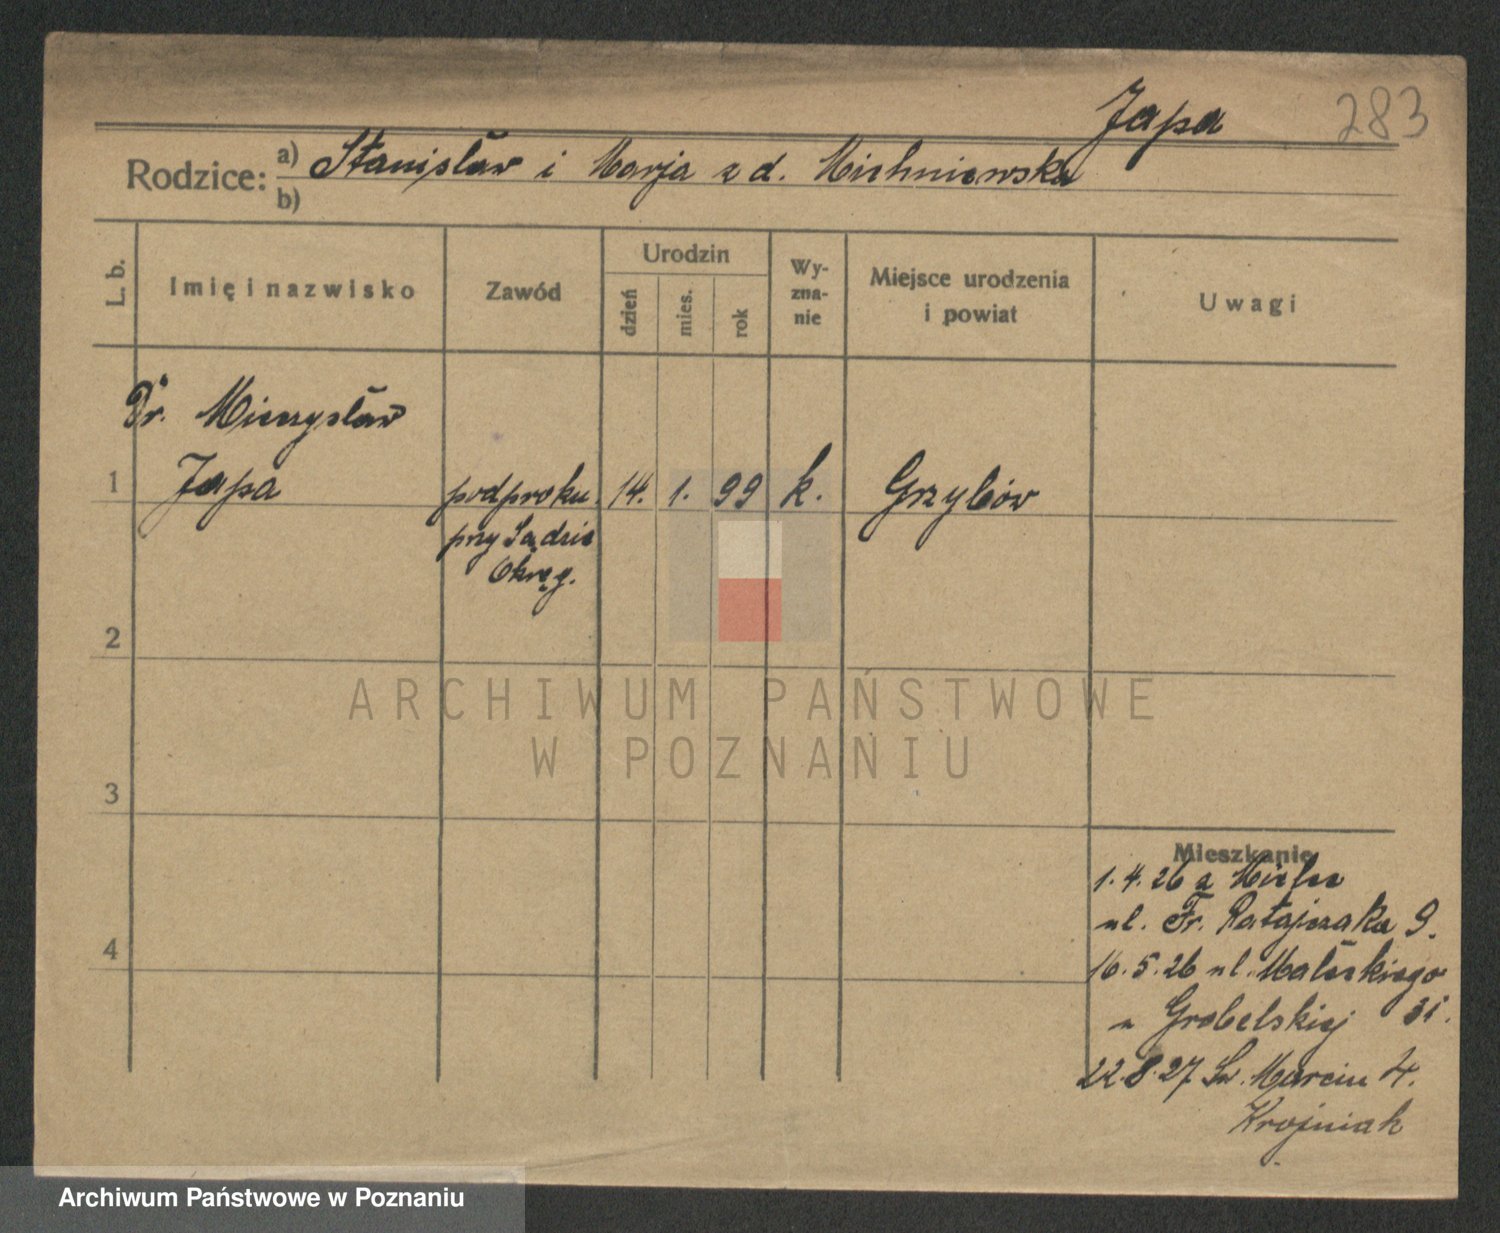 Japa 283
Rodzice: a) Stanisław i Marja z d. Michniewska
b)
L. b. Imię i nazwisko Zawód Urodzin dzień mies. rok Wy-zna-nie Miejsce urodzenia i powiat Uwagi
Dr. Mieczysław
1 Japa podproku. 14. 1. 99 k. Grzybów
przy Sądzie
Okręg.
2
ARCHIWUM PAŃSTWOWE
W POZNANIU
3
Mieszkanie
1.4.26 z Mielec
ul. Fr. Ratajczaka 9.
4
16.5.26 ul. Małeckiego
u Grobelskiej 31.
22.8.27 Św. Marcin 4.
Krojniak
Archiwum Państwowe w Poznaniu